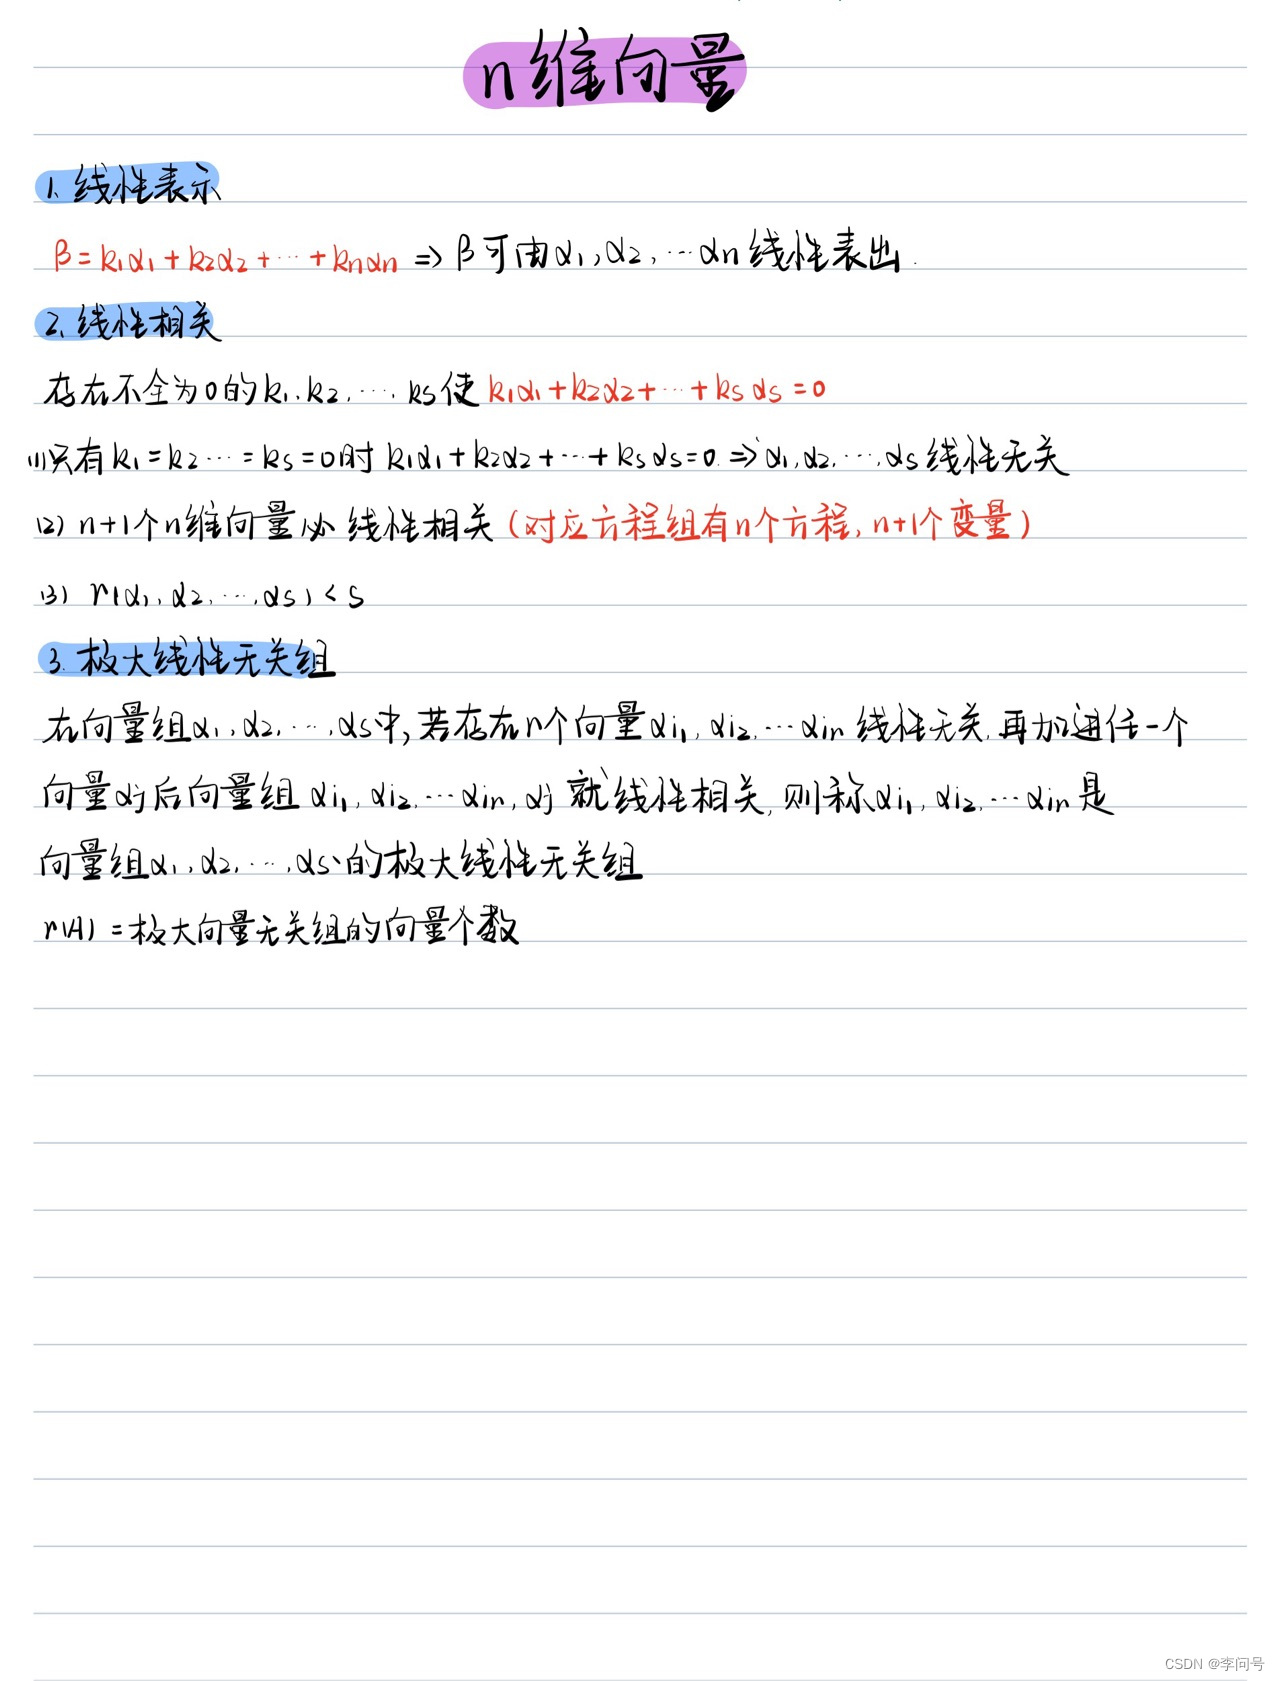 n维向量
1. 线性表示
β=k₁α₁+k₂α₂+···+knαn => β可由α₁,α₂,···αn线性表出.
2. 线性相关
存在不全为0的k₁.k₂.···.ks使 k₁α₁+k₂α₂+···+ksαs=0
(1)只有k₁=k₂···=ks=0时 k₁α₁+k₂α₂+···+ksαs=0.=>α₁,α₂.···,αs线性无关
(2) n+1个n维向量必线性相关(对应方程组有n个方程,n+1个变量)
(3) r(α₁,α₂,···,αs)<s
3. 极大线性无关组
在向量组α₁,α₂,···,αs中,若存在n个向量αi₁,αi₂,···αin线性无关.再加进任一个
向量αj后向量组αi₁,αi₂,···αin,αj就线性相关,则称αi₁,αi₂,···αin是
向量组α₁,α₂,···,αs的极大线性无关组
r(A)=极大向量无关组的向量个数
CSDN @李问号